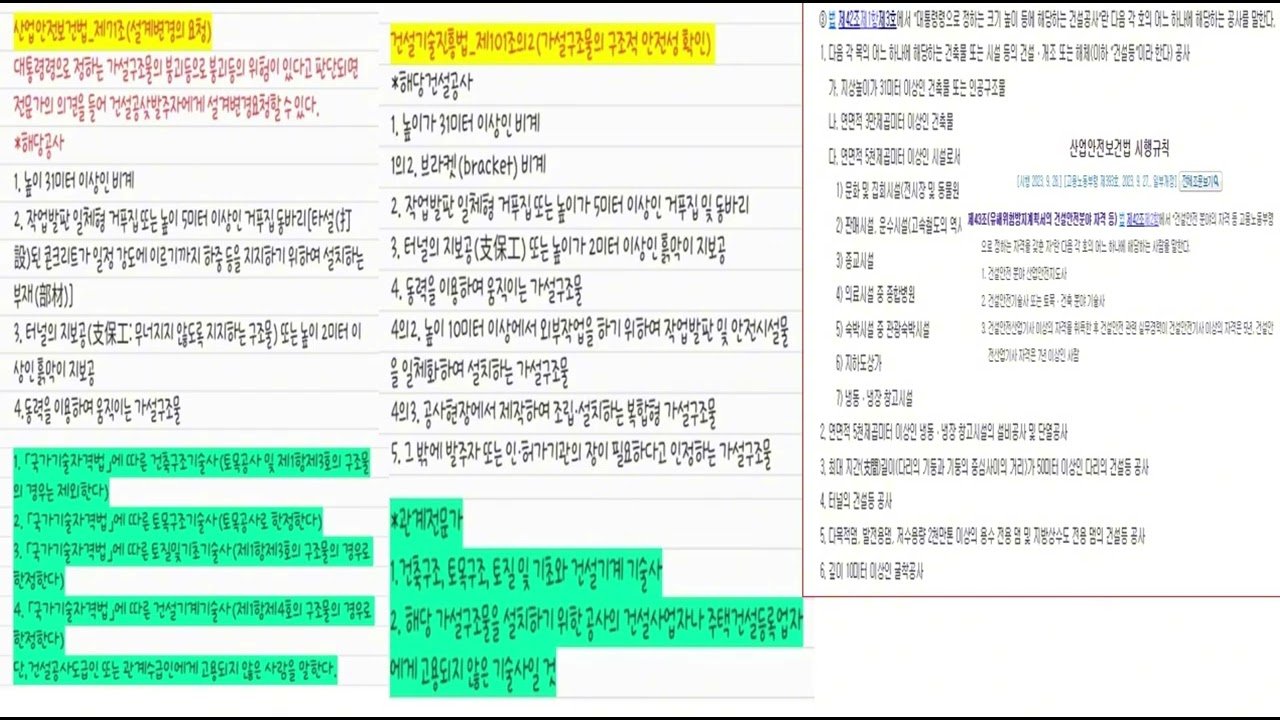 산업안전보건법_제71조(설계변경의 요청)
대통령령으로 정하는 가설구조물의 붕괴등으로 붕괴등의 위험이 있다고 판단되면
전문가의 의견을 들어 건설공삿발주자에게 설격변경요청할 수 있다.
*해당공사
1. 높이 31미터 이상인 비계
2. 작업발판 일체형 거푸집 또는 높이 5미터 이상인 거푸집 동바리[타설(打
設)된 콘크리트가 일정 강도에 이르기까지 하중 등을 지지하기 위하여 설치하는
부재(部材)]
3. 터널의 지보공(支保工: 무너지지 않도록 지지하는 구조물) 또는 높이 2미터 이
상인 흙막이 지보공
4.동력을 이용하여 움직이는 가설구조물
1. 「국가기술자격법」에 따른 건축구조기술사(토목공사 및 제1항제3호의 구조물
의 경우는 제외한다)
2. 「국가기술자격법」에 따른 토목구조기술사(토목공사로 한정한다)
3. 「국가기술자격법」에 따른 토질및기초기술사(제1항제3호의 구조물의 경우로
한정한다)
4. 「국가기술자격법」에 따른 건설기계기술사(제1항제4호의 구조물의 경우로
한정한다)
단, 건설공사도급인 또는 관계수급인에게 고용되지 않은 사람을 말한다.
건설기술진흥법_제101조의2(가설구조물의 구조적 안전성 확인)
*해당건설공사
1. 높이가 31미터 이상인 비계
1의2. 브라켓(bracket) 비계
2. 작업발판 일체형 거푸집 또는 높이가 5미터 이상인 거푸집 및 동바리
3. 터널의 지보공(支保工) 또는 높이가 2미터 이상인 흙막이 지보공
4. 동력을 이용하여 움직이는 가설구조물
4의2. 높이 10미터 이상에서 외부작업을 하기 위하여 작업발판 및 안전시설물
을 일체화하여 설치하는 가설구조물
4의3. 공사현장에서 제작하여 조립·설치하는 복합형 가설구조물
5. 그 밖에 발주자 또는 인·허가기관의 장이 필요하다고 인정하는 가설구조물
*관계전문가
1. 건축구조, 토목구조, 토질 및 기초와 건설기계 기술사
2. 해당 가설구조물을 설치하기 위한 공사의 건설사업자나 주택건설등록업자
에게 고용되지 않은 기술사일 것
③ 법 제42조제1항제3호에서 "대통령령으로 정하는 크기 높이 등에 해당하는 건설공사"란 다음 각 호의 어느 하나에 해당하는 공사를 말한다.
1. 다음 각 목의 어느 하나에 해당하는 건축물 또는 시설 등의 건설ㆍ개조 또는 해체(이하 "건설등"이라 한다) 공사
가. 지상높이가 31미터 이상인 건축물 또는 인공구조물
나. 연면적 3만제곱미터 이상인 건축물
다. 연면적 5천제곱미터 이상인 시설로서
1) 문화 및 집회시설(전시장 및 동물원
2) 판매시설, 운수시설(고속철도의 역사
3) 종교시설
4) 의료시설 중 종합병원
5) 숙박시설 중 관광숙박시설
6) 지하도상가
7) 냉동ㆍ냉장 창고시설
2. 연면적 5천제곱미터 이상인 냉동ㆍ냉장 창고시설의 설비공사 및 단열공사
3. 최대 지간(支間)길이(다리의 기둥과 기둥의 중심사이의 거리)가 50미터 이상인 다리의 건설등 공사
4. 터널의 건설등 공사
5. 다목적댐, 발전용댐, 저수용량 2천만톤 이상의 용수 전용 댐 및 지방상수도 전용 댐의 건설등 공사
6. 깊이 10미터 이상인 굴착공사
산업안전보건법 시행규칙
[시행 2023. 9. 28.] [고용노동부령 제393호, 2023. 9. 27., 일부개정] 전체조문보기
제43조(유해위험방지계획서의 건설안전분야 자격 등) 법 제42조제2항에서 "건설안전 분야의 자격 등 고용노동부령
으로 정하는 자격을 갖춘 자"란 다음 각 호의 어느 하나에 해당하는 사람을 말한다.
1. 건설안전 분야 산업안전지도사
2. 건설안전기술사 또는 토목ㆍ건축 분야 기술사
3. 건설안전산업기사 이상의 자격을 취득한 후 건설안전 관련 실무경력이 건설안전기사 이상의 자격은 5년, 건설안
전산업기사 자격은 7년 이상인 사람